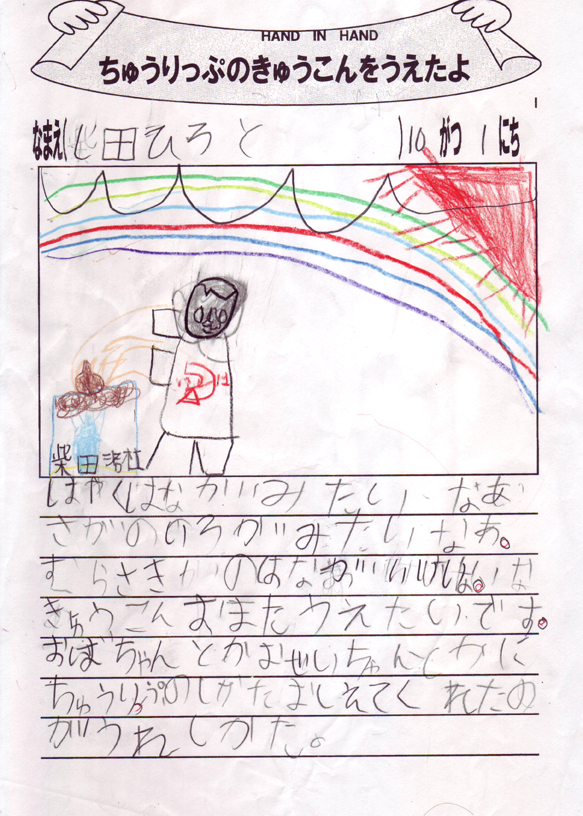 HAND IN HAND
ちゅうりっぷのきゅうこんをうえたよ
なまえ( 柴田ひろと )10がつ1にち
柴田
はやくはながみたいなあ
さがのいろがみたいなあ。
むらさきがのはな
きゅうこんおまたうえたいです。
おばちゃんとかおぜいちゃんとかに
ちゅうりっぷのしかたおしえてくれたの
がうれしかた。